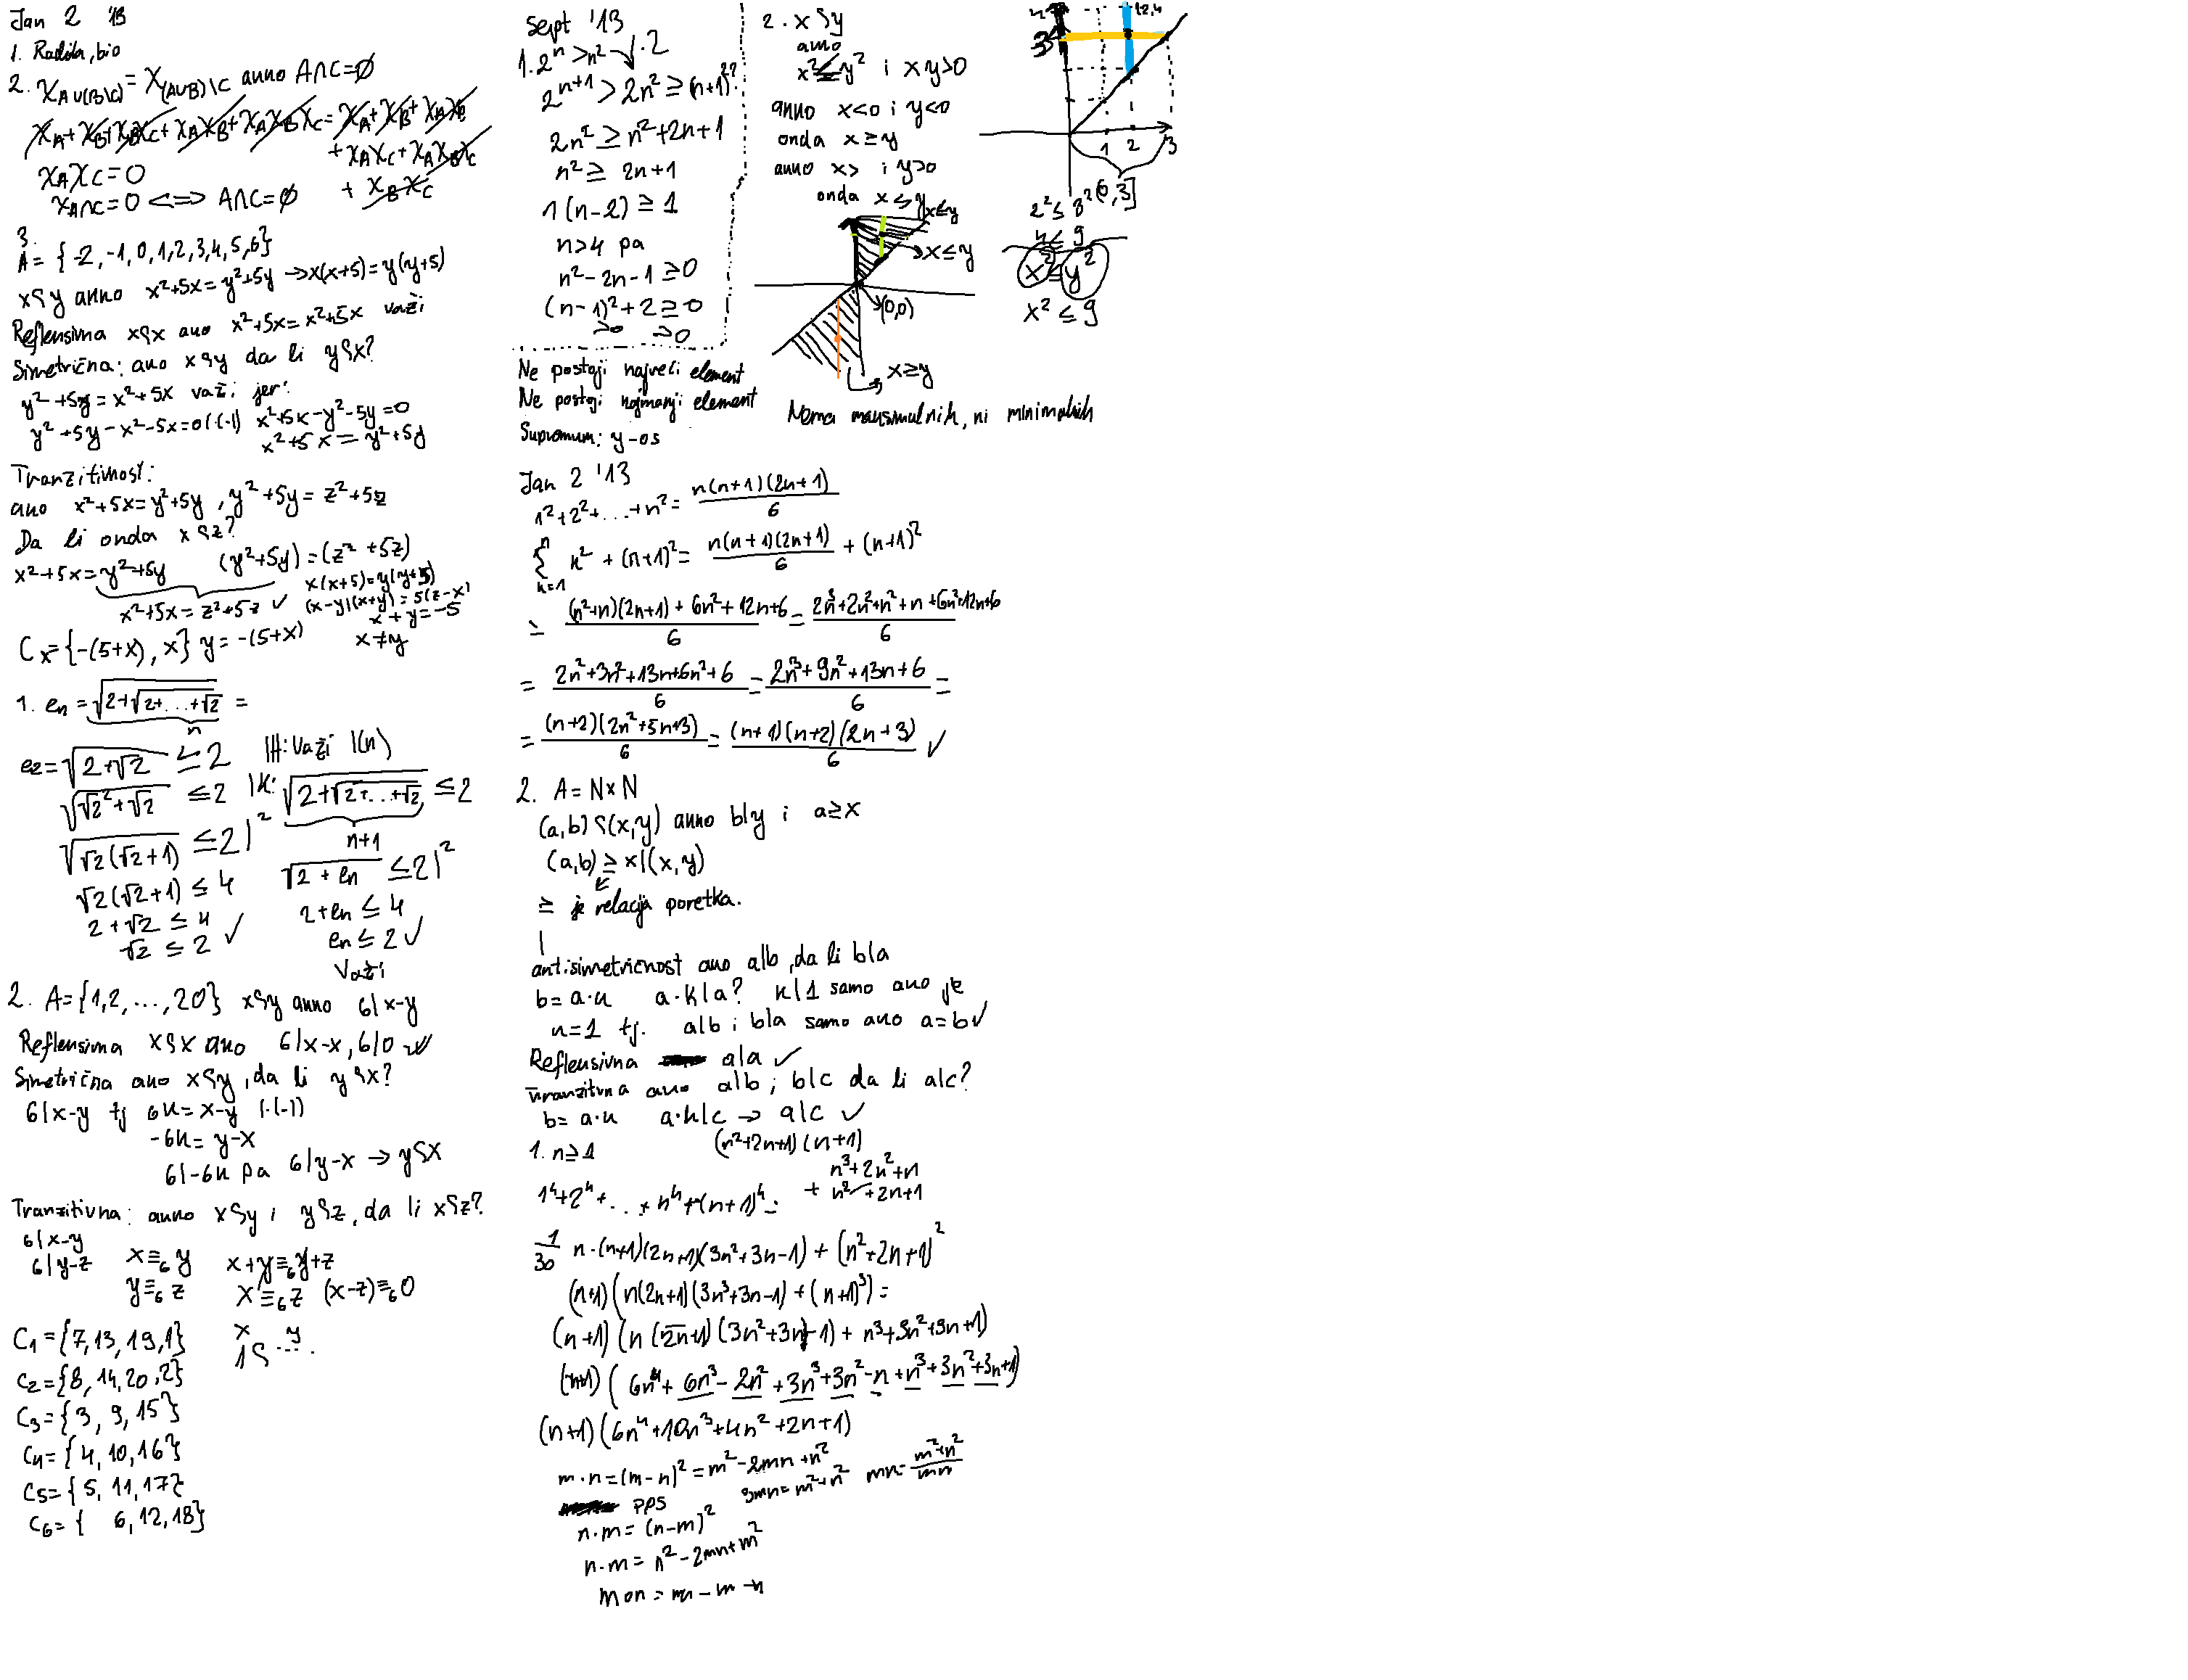 Jan 2 '13
1. Radila, bio
2. χ_{A∪(B\C)} = χ_{(A∪B)\C} akko A∩C=∅
χ_A+χ_B+χ_Bχ_C+χ_Aχ_B+χ_Aχ_Bχ_C=χ_A+χ_B+χ_Aχ_B
+χ_Aχ_C+χ_Aχ_Bχ_C
+ χ_Bχ_C
χ_Aχ_C=0
χ_{A∩C}=0 <=> A∩C=∅
3.
A= {-2,-1,0,1,2,3,4,5,6}
xρy akko x²+5x=y²+5y →x(x+5)=y(y+5)
Refleksivna xρx ako x²+5x=x²+5x važi
Simetrična: ako xρy da li yρx?
y²+5y=x²+5x važi jer:
y²+5y-x²-5x=0|·(-1) x²+5x-y²-5y=0
x²+5x=y²+5y
Tranzitivnost:
ako x²+5x=y²+5y, y²+5y=z²+5z
Da li onda xρz?
x²+5x=y²+5y (y²+5y)=(z²+5z)
x²+5x=z²+5z ✓
x(x+5)=y(y+5)
(x-y)(x+y)=5(z-x)
x+y=-5
C_x={-(5+x), x} y=-(5+x) x≠y
1. e_n=√(2+√(2+...+√2)) =
n
e₂=√(2+√2) ≤2
√(√2²+√2) ≤2
√(√2(√2+1)) ≤2|²
√2(√2+1) ≤ 4
2+√2 ≤ 4
√2 ≤ 2 ✓
IH: Važi I(n)
IK: √(2+√(2+...+√2)) ≤2
n+1
√(2+e_n) ≤2|²
2+e_n ≤ 4
e_n ≤ 2 ✓
Važi
2. A={1,2,...,20} xρy akko 6|x-y
Refleksivna xρx ako 6|x-x, 6|0 ✓
Simetrična ako xρy, da li yρx?
6|x-y tj 6k=x-y |·(-1)
-6k=y-x
6|-6k pa 6|y-x → yρx
Tranzitivna: akko xρy i yρz, da li xρz?
6|x-y
6|y-z
x≡₆y x+y≡₆y+z
y≡₆z x≡₆z (x-z)≡₆0
C₁={7,13,19,1}
x y
1ρ ....
C₂={8,14,20,2}
C₃={3,9,15}
C₄={4,10,16}
C₅={5,11,17}
C₆={ 6,12,18}
Sept '13
1. 2ⁿ>n² |·2
2ⁿ⁺¹>2n²≥(n+1)²?
2n²≥n²+2n+1
n²≥ 2n+1
n(n-2)≥1
n>4 pa
n²-2n-1≥0
(n-1)²+2≥0
>0 >0
2. xρy
ako
x²≤y² i xy>0
akko x<0 i y<0
onda x≥y
akko x> i y>0
onda x≤y
x≤y
x≤y
(0,0)
x≥y
4
(2,4
3
1 2 3
(0,3]
2²≤3²
4≤9
x²≤y²
x²≤9
Ne postoji najveći element
Ne postoji najmanji element
Supremum: y-os
Nema maksimalnih, ni minimalnih
Jan 2 '13
1²+2²+...+n²= n(n+1)(2n+1)/6
Σ k²+(n+1)²= n(n+1)(2n+1)/6 + (n+1)²
k=1
n
= (n²+n)(2n+1)+6n²+12n+6/6 = 2n³+2n²+n²+n+6n²+12n+6/6
= 2n²+3n²+13n+6n²+6/6 = 2n³+9n²+13n+6/6 =
= (n+2)(2n²+5n+3)/6 = (n+1)(n+2)(2n+3)/6 ✓
2. A=N×N
(a,b)ρ(x,y) akko b|y i a≥x
(a,b)≥x|(x,y)
≥ je relacija poretka.
|
antisimetričnost ako a|b, da li b|a
b=a·k a·k|a? k|1 samo ako je
k=1 tj. a|b i b|a samo ako a=b✓
Refleksivna a|a ✓
Tranzitivna ako a|b i b|c da li a|c?
b=a·k a·k|c → a|c ✓
1. n≥1
(n²+2n+1)(n+1)
n³+2n²+n
+ n²+2n+1
1⁴+2⁴+...+n⁴+(n+1)⁴=
1/30 n·(n+1)(2n+1)(3n²+3n-1)+(n²+2n+1)²
(n+1)(n(2n+1)(3n³+3n-1)+(n+1)³)=
(n+1)(n(2n+1)(3n²+3n-1)+n³+3n²+3n+1)
(n+1)(6n⁴+6n³-2n²+3n³+3n²-n+n³+3n²+3n+1)
(n+1)(6n⁴+10n³+4n²+2n+1)
m·n=(m-n)²=m²-2mn+n²
3mn=m²+n² mn=m²+n²/mn
PPS
n·m=(n-m)²
n·m=n²-2mn+m²
m o n = mn-m-n